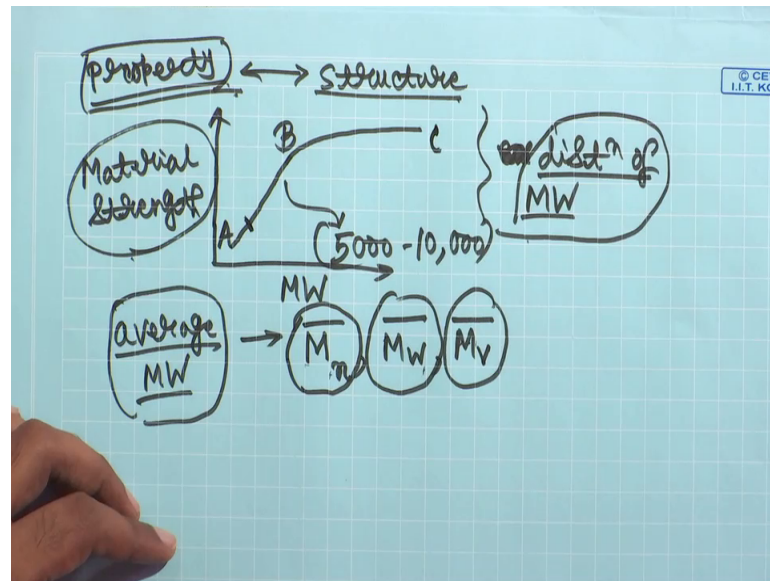 property ↔ structure
© CE
I.I.T. KG
Material
Strength
A
B
C
(5000 - 10,000)
distⁿ of
MW
MW
average
MW
→ M̅n, M̅w, M̅v